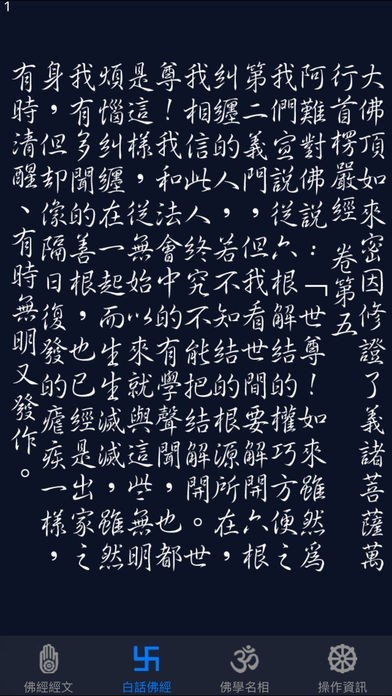 1
大佛頂如來密因修證了義諸菩薩萬
行首楞嚴經 卷第五
阿難對佛說：「世尊！如來雖然為
我們宣說從六根解結的權巧方便之
第二義門，但我看世間要解開六根
糾纏的人，若不知結的根源所在，
我相信此人終究不能把結解開。世
尊！我和法會中的有學聲聞，也都
是這樣，從無始以來就與這些無明
煩惱糾纏在一起而生生滅滅，雖然
我有多聞的善根，也已經是出家之
身，但卻像隔日復發的瘧疾一樣，
有時清醒、有時無明又發作。
佛經經文
白話佛經
佛學名相
操作資訊